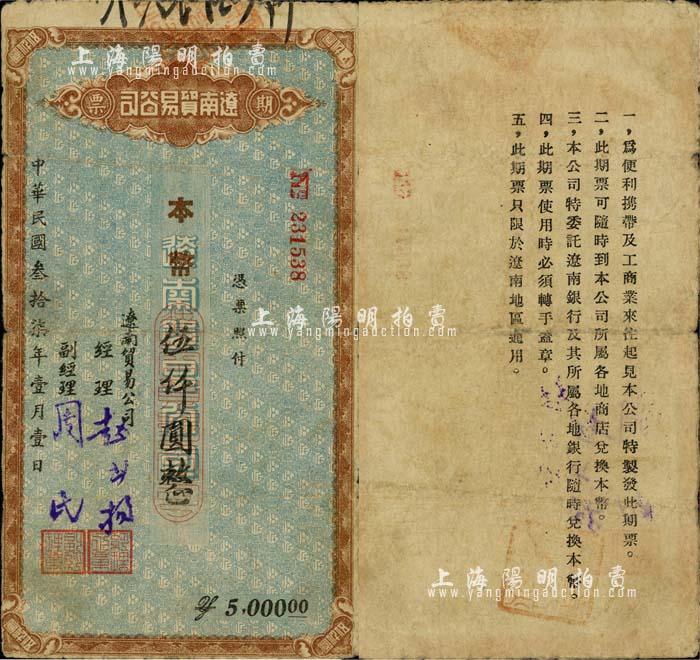 上海陽明拍賣
www.yangmingauction.com
遼南貿易公司
期票
No 231538
憑票照付
本幣伍仟圓整
遼南貿易公司
經理
副經理 周民
中華民國叁拾柒年壹月壹日
5,000.00
上海陽明拍賣
www.yangmingauction.com
上海陽明拍賣
www.yangmingauction.com
一，爲便利攜帶及工商業來往起見本公司特製發此期票。
二，此期票可隨時到本公司所屬各地商店兌換本幣。
三，本公司特委託遼南銀行及其所屬各地銀行隨時兌換本幣。
四，此期票使用時必須轉手蓋章。
五，此期票只限於遼南地區通用。
上海陽明拍賣
www.yangmingauction.com
上海陽明拍賣
www.yangmingauction.com